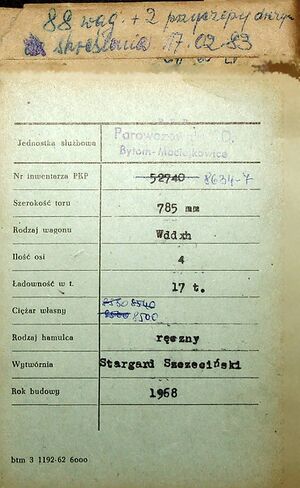 88 wag. + 2 przyczepy
skreślenia 17.02.83
Parowozownia
Jednostka służbowa
Bytom-Maciejkowice
Nr inwentarza PKP 52740 8634-7
Szerokość toru 785 mm
Rodzaj wagonu Wddxh
Ilość osi 4
Ładowność w t. 17 t.
8550 8540
Ciężar własny 8500 8500
Rodzaj hamulca ręczny
Wytwórnia Stargard Szczeciński
Rok budowy 1968
btm 3 1192-62 6000